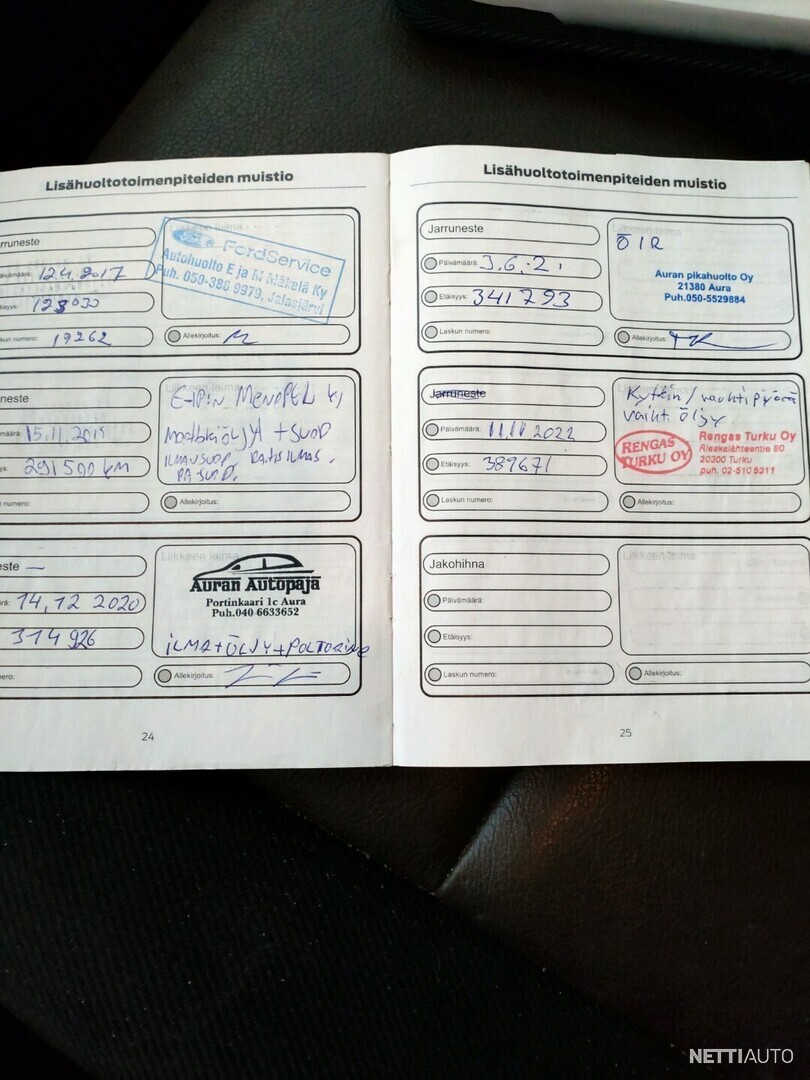 Lisähuoltotoimenpiteiden muistio
rruneste
Päivämäärä: 12.4.2017
äisyys: 128030
kun numero: 19262
Liikkeen leima
Ford
FordService
Autohuolto E ja M Mäkelä Ky
Puh. 050-386 9979, Jalasjärvi
Allekirjoitus:
neste
määrä: 15.11.2019
ys: 291500 km
numero:
Liikkeen leima
MOOTTORIÖLJYT + SUOD
Allekirjoitus:
este —
rä: 14.12 2020
314926
ero:
Liikkeen leima
AURAN AUTOPAJA
Portinkaari 1c Aura
Puh.040 6633652
ILMA+ÖLJY+POLTOAINE
Allekirjoitus:
24
Lisähuoltotoimenpiteiden muistio
Jarruneste
Päivämäärä: 3.6.21
Etäisyys: 341793
Laskun numero:
Liikkeen leima
Auran pikahuolto Oy
21380 Aura
Puh.050-5529884
Allekirjoitus:
Jarruneste
Päivämäärä: 11.11 2022
Etäisyys: 389671
Laskun numero:
Kytkin / vauhtipyörä
vaiht. öljy
RENGAS TURKU OY
Rengas Turku Oy
Rieskalähteentie 80
20300 Turku
puh. 02-510 5311
Allekirjoitus:
Jakohihna
Päivämäärä:
Etäisyys:
Laskun numero:
Liikkeen leima
Allekirjoitus:
25
NETTIAUTO